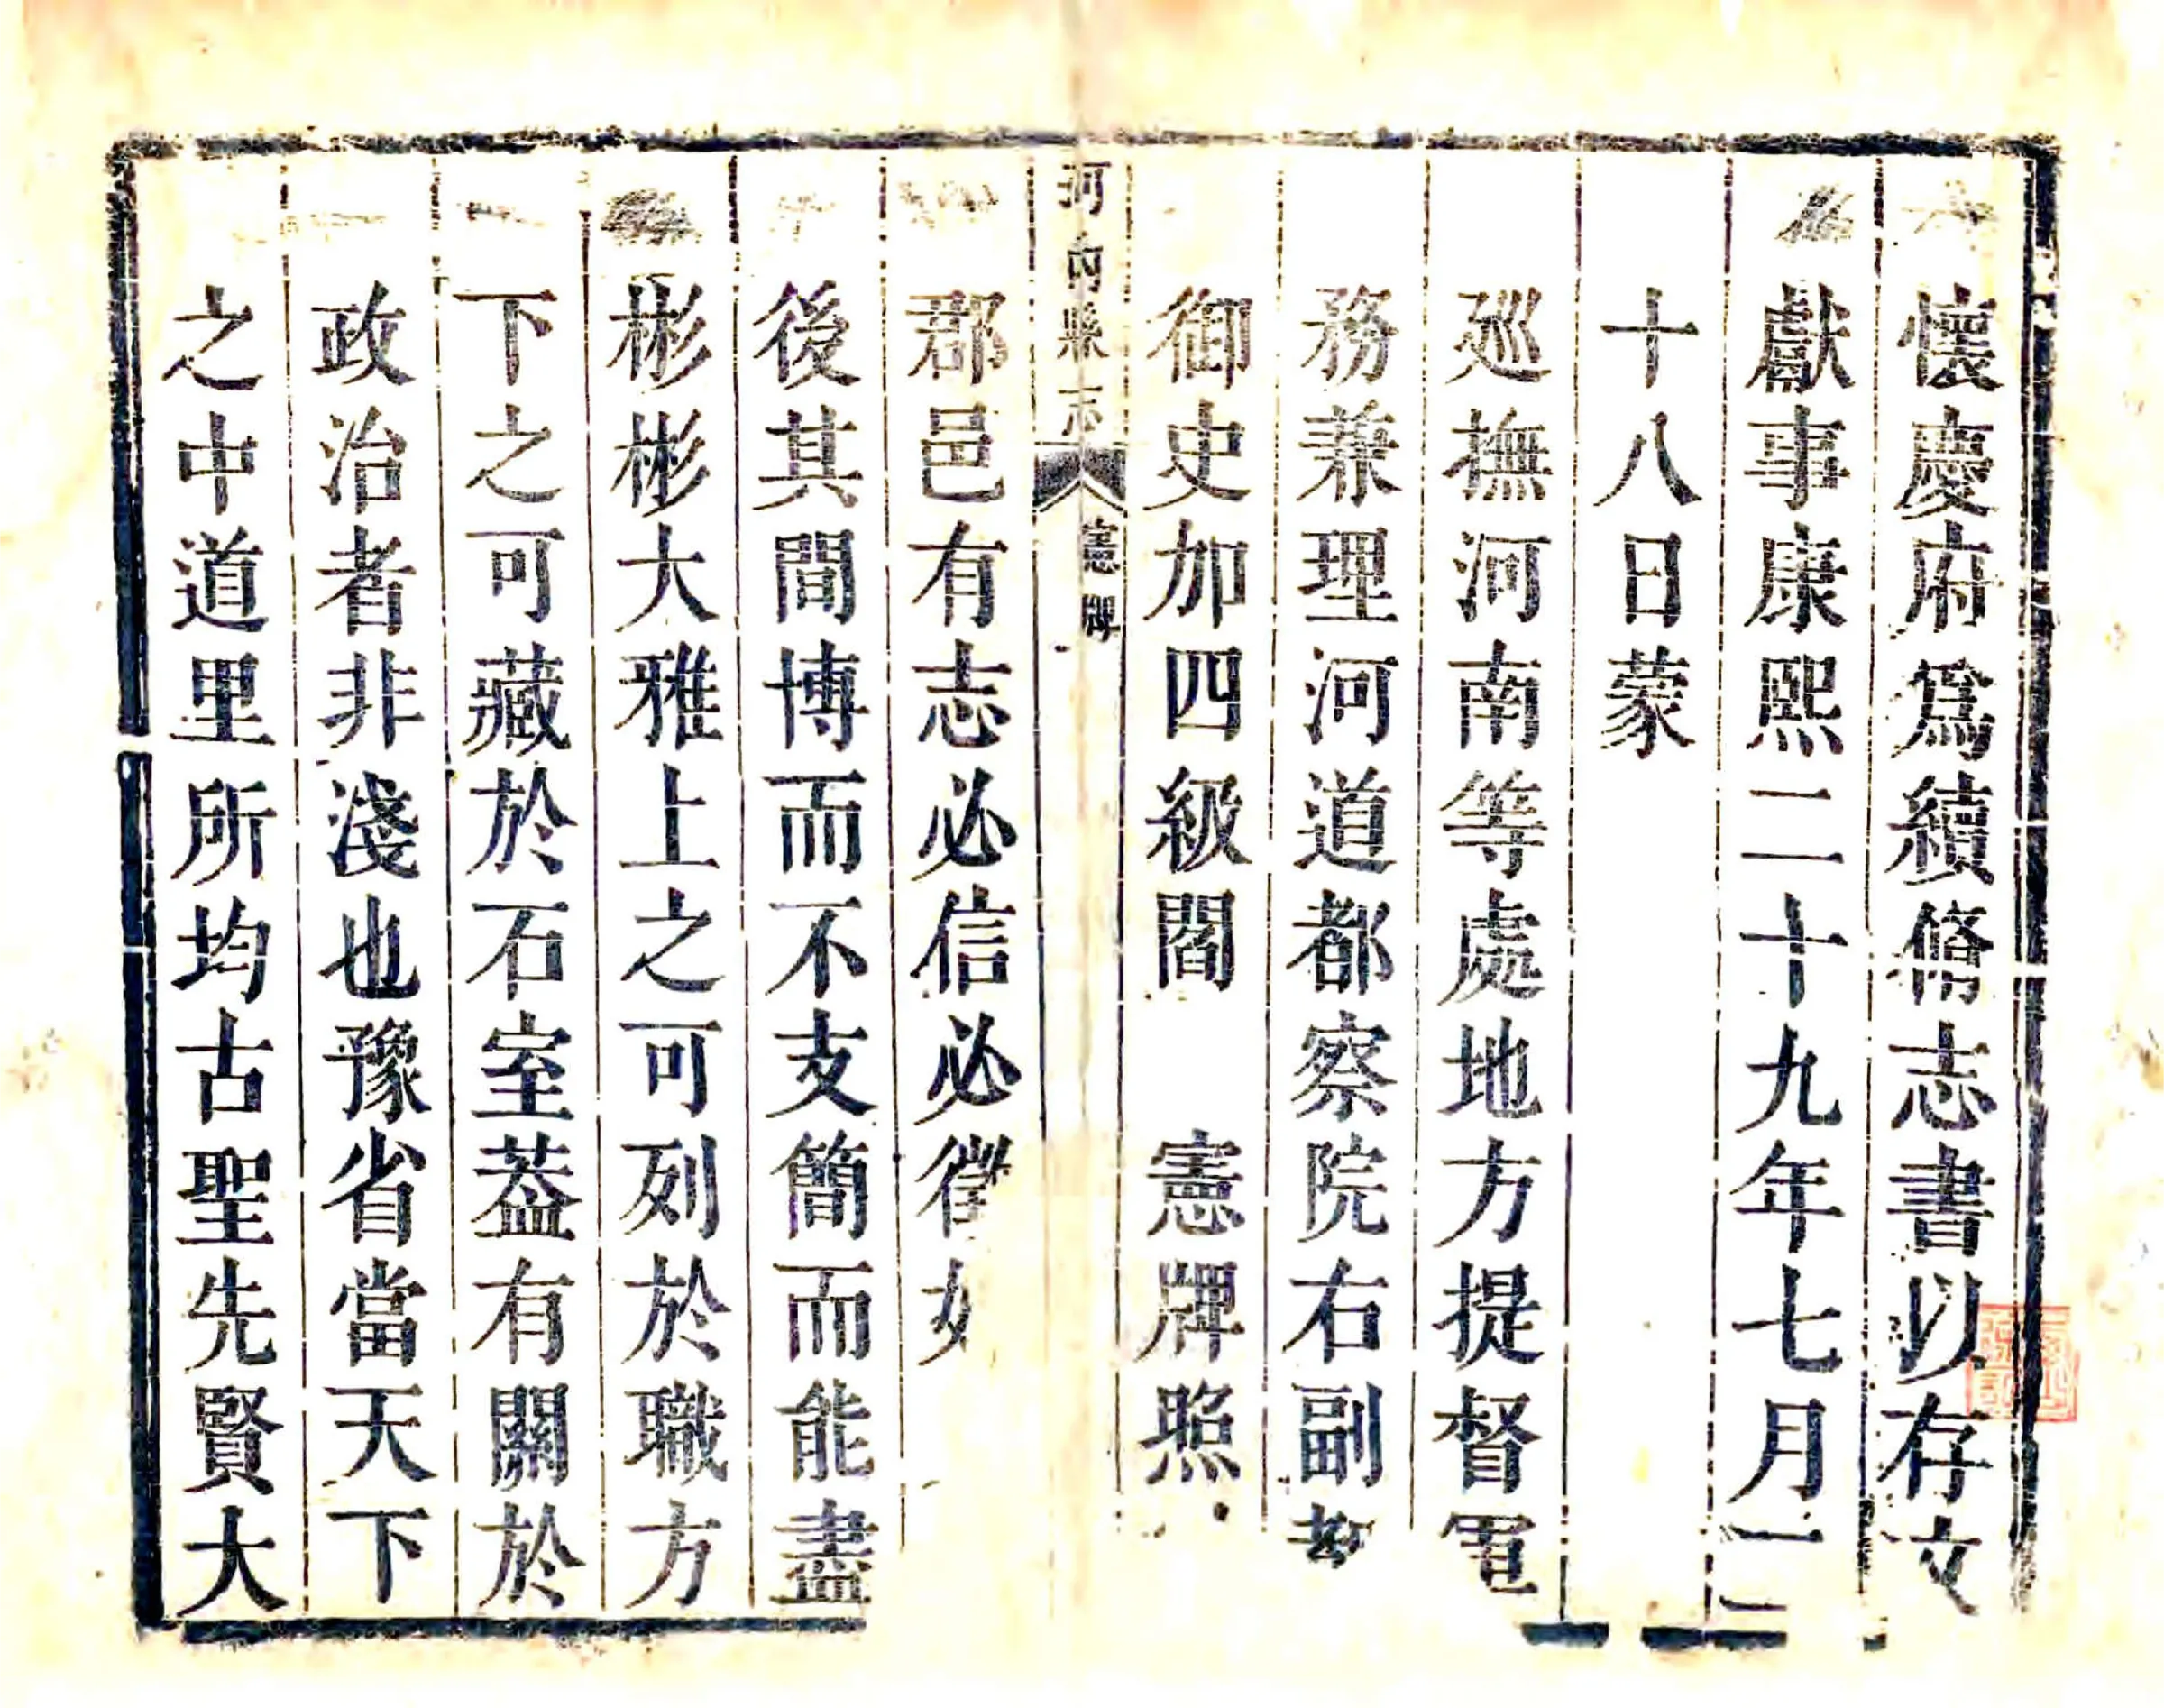 懷慶府爲續脩志書以存文
獻事康熙二十九年七月二
十八日蒙
巡撫河南等處地方提督軍
務兼理河道都察院右副
御史加四級閻　憲牌照
河內縣志　憲牌
郡邑有志必信必徵
後其間博而不支簡而能盡
彬彬大雅上之可列於職方
下之可藏於石室葢有關於
政治者非淺也豫省當天下
之中道里所均古聖先賢大